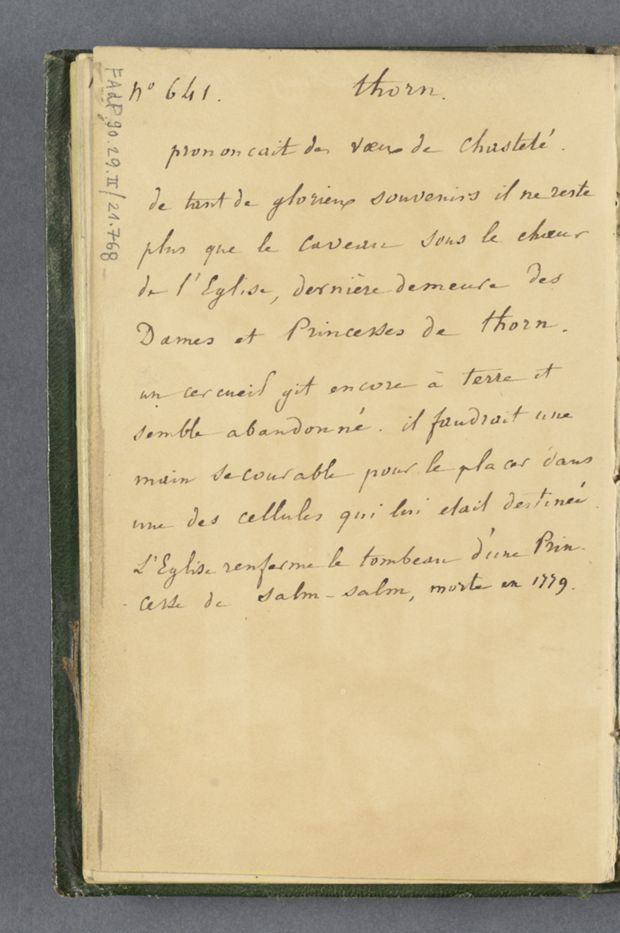 n° 641. thorn.
prononcait des vœux de chasteté.
de tant de glorieux souvenirs il ne reste
plus que le caveau sous le chœur
de l'Eglise, dernière demeure des
Dames et Princesses de thorn.
un cercueil git encore à terre et
semble abandonné. il faudrait une
main secourable pour le placer dans
une des cellules qui lui etait destinée.
L'Eglise renferme le tombeau d'une Prin-
cesse de Salm-Salm, morte en 1779.
FAdP,90.29.III/21.768